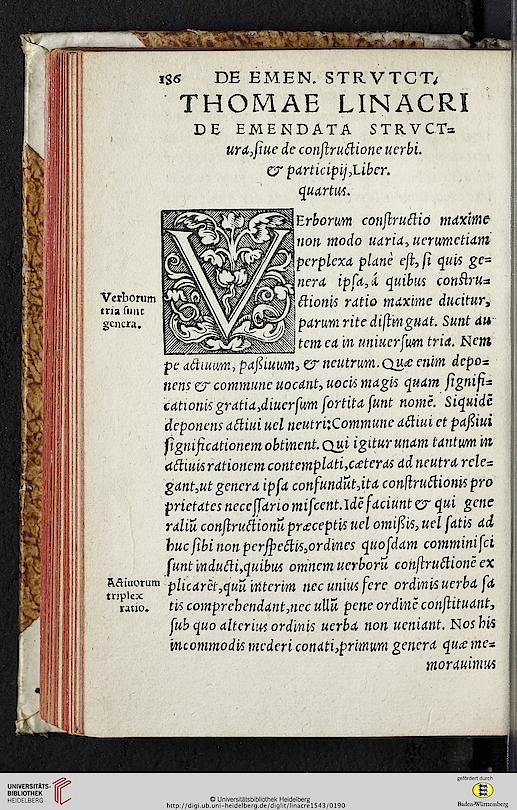 186 DE EMEN. STRVTCT.
THOMAE LINACRI
DE EMENDATA STRVCT=
ura, siue de constructione uerbi.
& participij, Liber.
quartus.
VErborum constructio maxime
non modo uaria, uerumetiam
perplexa planè est, si quis ge=
nera ipsa, á quibus constru=
ctionis ratio maxime ducitur,
parum rite distinguat. Sunt au
Verborum
tria sunt
genera.
tem ea in uniuersum tria. Nem
pe actiuum, passiuum, & neutrum. Quæ enim depo=
nens & commune uocant, uocis magis quam signifi=
cationis gratia, diuersum sortita sunt nomē. Siquidē
deponens actiui uel neutri: Commune actiui et passiui
significationem obtinent. Qui igitur unam tantum in
actiuis rationem contemplati, cæteras ad neutra rele=
gant, ut genera ipsa confundūt, ita constructionis pro
prietates necessario miscent. Idē faciunt & qui gene
raliū constructionū præceptis uel omissis, uel satis ad
huc sibi non perspectis, ordines quosdam comminisci
sunt inducti, quibus omnem uerborū constructionē ex
Actiuorum
triplex
ratio.
plicarēt, quū interim nec unius fere ordinis uerba sa
tis comprehendant, nec ullū pene ordinē constituant,
sub quo alterius ordinis uerba non ueniant. Nos his
incommodis mederi conati, primum genera quæ me=
morauimus
UNIVERSITÄTS-
BIBLIOTHEK
HEIDELBERG
© Universitätsbibliothek Heidelberg
http://digi.ub.uni-heidelberg.de/diglit/linacre1543/0190
gefördert durch
Baden-Württemberg